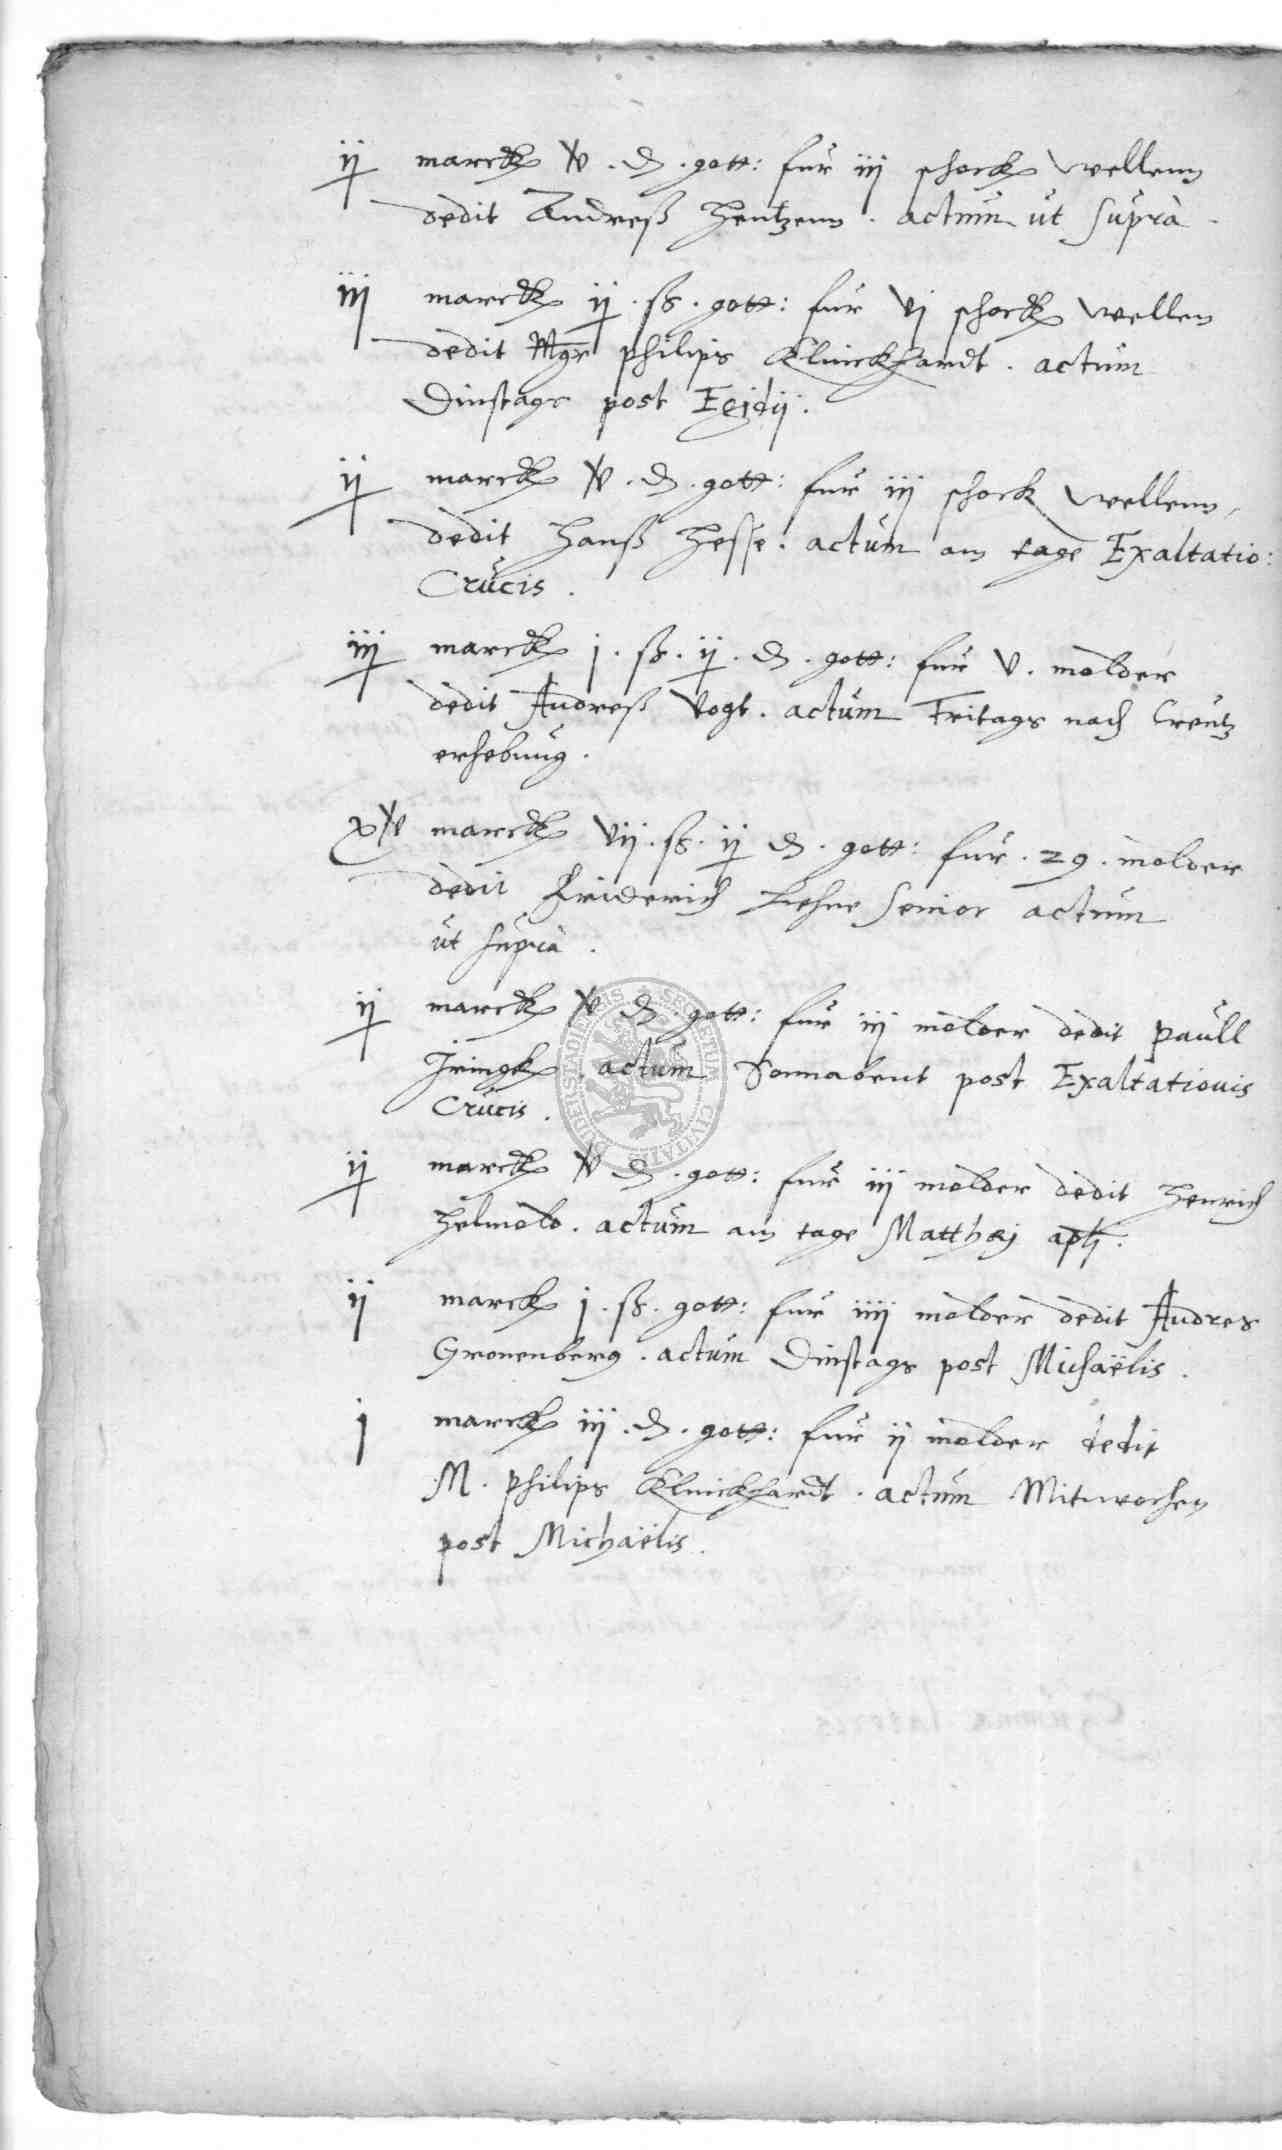 ij marck v. d. gott: fur iij schock wellenn
dedit Andreß Hentzenn. actum ut supra.
iij marck ij. ß. gott: fur vj schock wellen
dedit Mgr philips Klinckhardt. actum
Dinstags post Egidij.
ij marck v. d. gott: fur iij schock wellenn,
dedit Hanß Hesse. actum am tage Exaltatio:
Crucis.
iij marck j. ß. ij. d. gott: fur v. molder
dedit Andreß Vogt. actum Fritags nach Creutz
erhebung.
xv marck vij. ß. ij d. gott: fur. 29. molder
dedit Friderich Lehne Senior actum
ut supra.
ij marck v d. gott: fur iij molder dedit paull
Jringk. actum Sonnabent post Exaltationis
Crucis.
ij marck v d. gott: fur iij molder dedit Henrich
Helmold. actum am tage Matthaej apli:
ij marck j. ß. gott: fur iiij molder dedit Andres
Gronenberg. actum Dinstags post Michaëlis.
j marck iij. d. gott: fur ij molder dedit
M. philips Klinckhardt. actum Mitwochen
post Michaëlis.